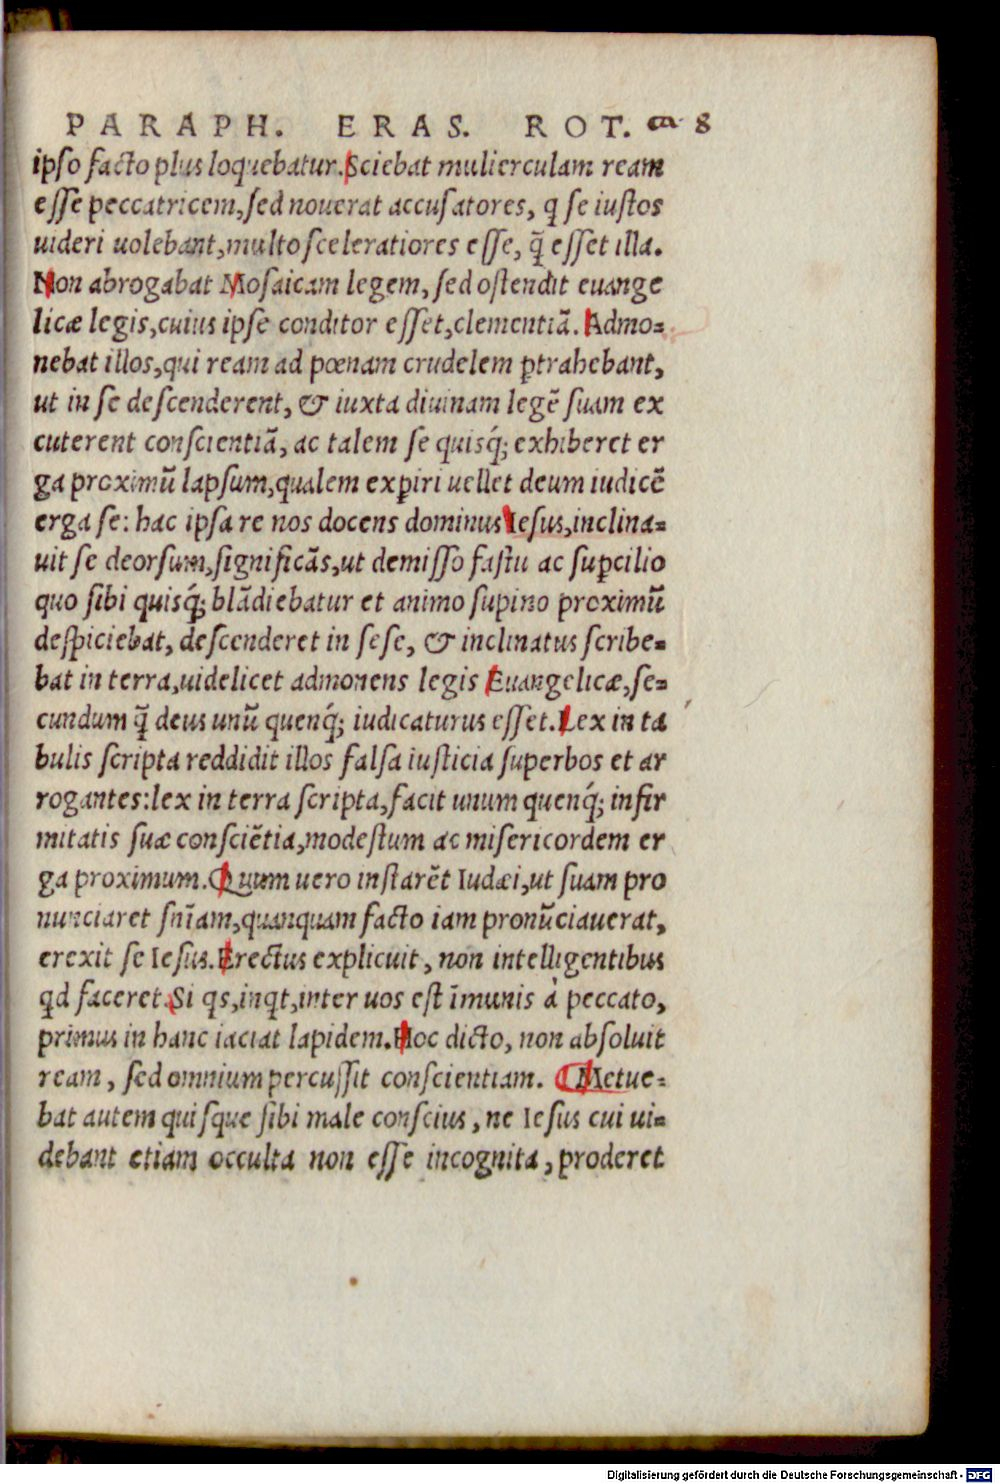 PARAPH. ERAS. ROT. ca 8
ipso facto plus loquebatur. Sciebat mulierculam ream
esse peccatricem, sed nouerat accusatores, q se iustos
uideri uolebant, multo sceleratiores esse, q̃ esset illa.
Non abrogabat Mosaicam legem, sed ostendit euange
licæ legis, cuius ipse conditor esset, clementiã. Admo⸗
nebat illos, qui ream ad pœnam crudelem ꝑtrahebant,
ut in se descenderent, & iuxta diuinam legẽ suam ex
cuterent conscientiã, ac talem se quisq́; exhiberet er
ga proximũ lapsum, qualem exꝑiri uellet deum iudicẽ
erga se: hac ipsa re nos docens dominus Iesus, inclina⸗
uit se deorsum, significãs, ut demisso fastu ac suꝑcilio
quo sibi quisq́; blãdiebatur et animo supino proximũ
despiciebat, descenderet in sese, & inclinatus scribe⸗
bat in terra, uidelicet admonens legis Euangelicæ, se⸗
cundum q̃ deus unũ quenq́; iudicaturus esset. Lex in ta
bulis scripta reddidit illos falsa iusticia superbos et ar
rogantes: lex in terra scripta, facit unum quenq́; infir
mitatis suæ consciẽtia, modestum ac misericordem er
ga proximum. Quum uero instarẽt Iudæi, ut suam pro
nunciaret snĩam, quanquam facto iam pronũciauerat,
erexit se Iesus. Erectus explicuit, non intelligentibus
qd faceret. Si qs, inqt, inter uos est ĩmunis à peccato,
primus in hanc iaciat lapidem. Hoc dicto, non absoluit
ream, sed omnium percussit conscientiam. Metue⸗
bat autem quisque sibi male conscius, ne Iesus cui ui⸗
debant etiam occulta non esse incognita, proderet
Digitalisierung gefördert durch die Deutsche Forschungsgemeinschaft - DFG